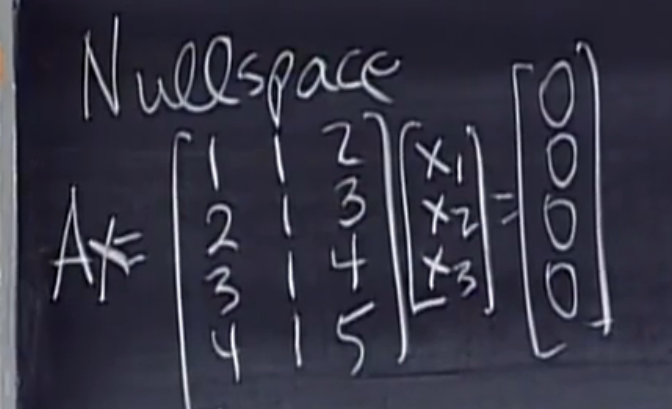 Nullspace
Ax= [1 1 2; 2 1 3; 3 1 4; 4 1 5] [x1; x2; x3] = [0; 0; 0; 0]